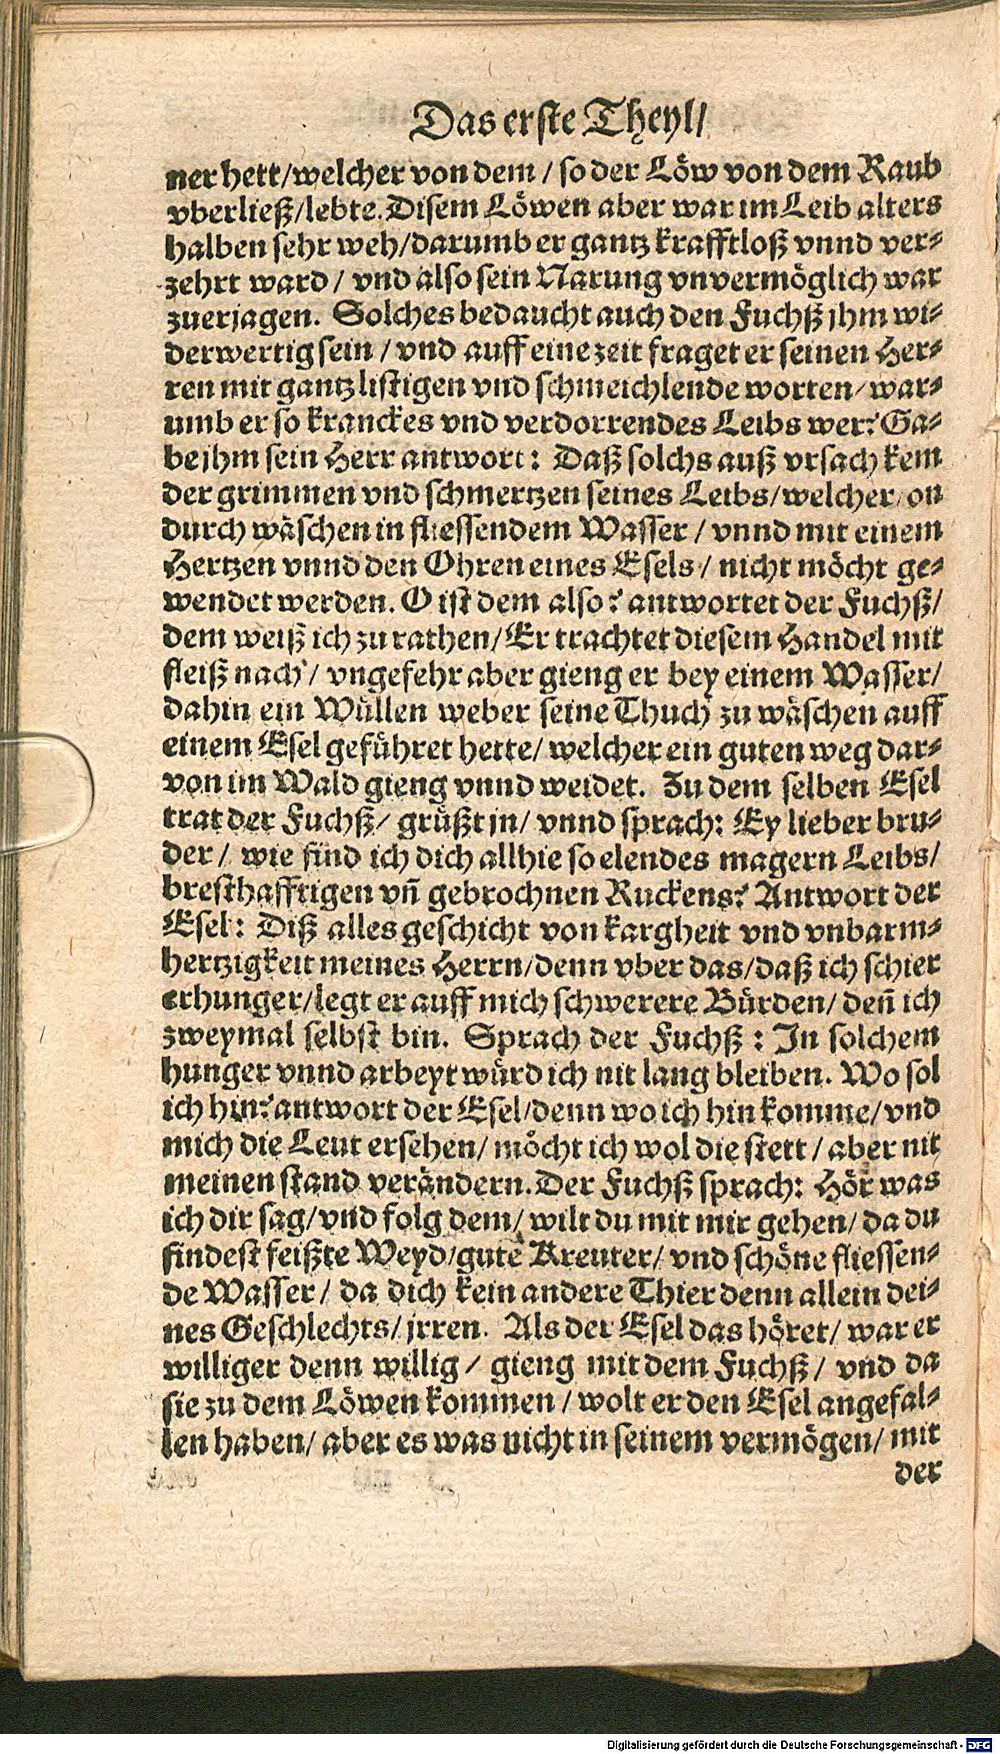 Das erste Theyl/
ner hett/welcher von dem / so der Löw von dem Raub
vberließ/lebte. Disem Löwen aber war im Leib alters
halben sehr weh/darumb er gantz krafftloß vnnd ver-
zehrt ward / vnd also sein Narung vnvermöglich war
zuerjagen. Solches bedaucht auch den Fuchß jhm wi-
derwertig sein / vnd auff eine zeit fraget er seinen Her-
ren mit gantz listigen vnd schmeichlende worten/ war-
umb er so kranckes vnd verdorrendes Leibs wer? Ga-
be jhm sein Herr antwort: Daß solchs auß vrsach kem
der grimmen vnd schmertzen seines Leibs/welcher/on
durch wäschen in fliessendem Wasser / vnnd mit einem
Hertzen vnnd den Ohren eines Esels / nicht möcht ge-
wendet werden. O ist dem also? antwortet der Fuchß/
dem weiß ich zu rathen/ Er trachtet diesem Handel mit
fleiß nach / vngefehr aber gieng er bey einem Wasser/
dahin ein Wüllen weber seine Thuch zu wäschen auff
einem Esel geführet hette/ welcher ein guten weg dar-
von im Wald gieng vnnd weidet. Zu dem selben Esel
trat der Fuchß/ grüßt jn/ vnnd sprach: Ey lieber bru-
der / wie find ich dich allhie so elendes magern Leibs/
bresthafftigen vñ gebrochnen Ruckens? Antwort der
Esel: Diß alles geschicht von kargheit vnd vnbarm-
hertzigkeit meines Herrn/denn vber das/daß ich schier
erhunger/legt er auff mich schwerere Bürden/ deñ ich
zweymal selbst bin. Sprach der Fuchß : In solchem
hunger vnnd arbeyt würd ich nit lang bleiben. Wo sol
ich hin? antwort der Esel/denn wo ich hin komme/vnd
mich die Leut ersehen/ möcht ich wol die stett / aber nit
meinen stand verändern. Der Fuchß sprach: Hör was
ich dir sag/vnd folg dem/ wilt du mit mir gehen/ da du
findest feißte Weyd/gute Kreuter/ vnd schöne fliessen-
de Wasser / da dich kein andere Thier denn allein dei-
nes Geschlechts/ jrren. Als der Esel das höret/ war er
williger denn willig / gieng mit dem Fuchß / vnd da
sie zu dem Löwen kommen / wolt er den Esel angefal-
len haben/ aber es was nicht in seinem vermögen/ mit
der
Digitalisierung gefördert durch die Deutsche Forschungsgemeinschaft - DFG